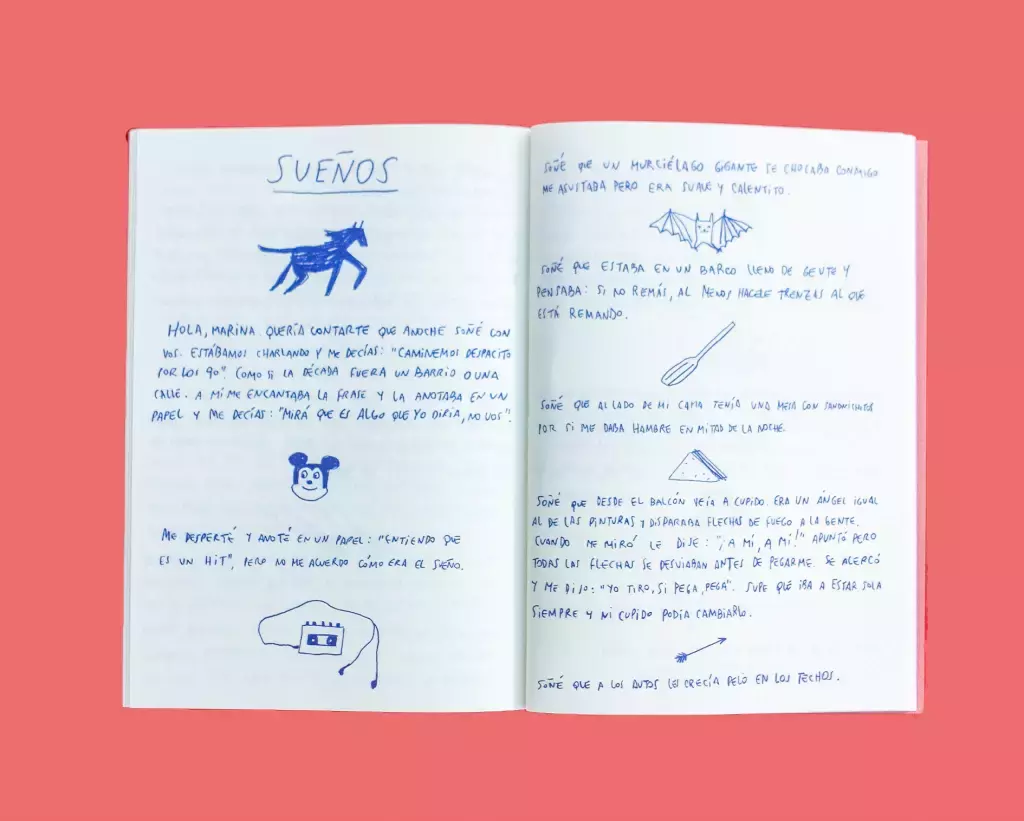 SUEÑOS
HOLA, MARINA. QUERÍA CONTARTE QUE ANOCHE SOÑÉ CON
VOS. ESTÁBAMOS CHARLANDO Y ME DECÍAS: "CAMINEMOS DESPACITO
POR LOS 90" COMO SI LA DÉCADA FUERA UN BARRIO O UNA
CALLE. A MÍ ME ENCANTABA LA FRASE Y LA ANOTABA EN UN
PAPEL Y ME DECÍAS: "MIRÁ QUE ES ALGO QUE YO DIRÍA, NO VOS".
ME DESPERTÉ Y ANOTÉ EN UN PAPEL: "ENTIENDO QUE
ES UN HIT", PERO NO ME ACUERDO CÓMO ERA EL SUEÑO.
SOÑÉ QUE UN MURCIÉLAGO GIGANTE SE CHOCABA CONMIGO
ME ASUSTABA PERO ERA SUAVE Y CALENTITO.
SOÑÉ QUE ESTABA EN UN BARCO LLENO DE GENTE Y
PENSABA: SI NO REMÁS, AL MENOS HACELE TRENZAS AL QUE
ESTÁ REMANDO.
SOÑÉ QUE AL LADO DE MI CAMA TENÍA UNA MESA CON SANDWICHITOS
POR SI ME DABA HAMBRE EN MITAD DE LA NOCHE.
SOÑÉ QUE DESDE EL BALCÓN VEÍA A CUPIDO. ERA UN ÁNGEL IGUAL
AL DE LAS PINTURAS Y DISPARABA FLECHAS DE FUEGO A LA GENTE.
CUANDO ME MIRÓ LE DIJE: "¡A MÍ, A MÍ!" APUNTÓ PERO
TODAS LAS FLECHAS SE DESVIABAN ANTES DE PEGARME. SE ACERCÓ
Y ME DIJO: "YO TIRO, SI PEGA, PEGA". SUPE QUE IBA A ESTAR SOLA
SIEMPRE Y NI CUPIDO PODÍA CAMBIARLO.
SOÑÉ QUE A LOS AUTOS LES CRECÍA PELO EN LOS TECHOS.